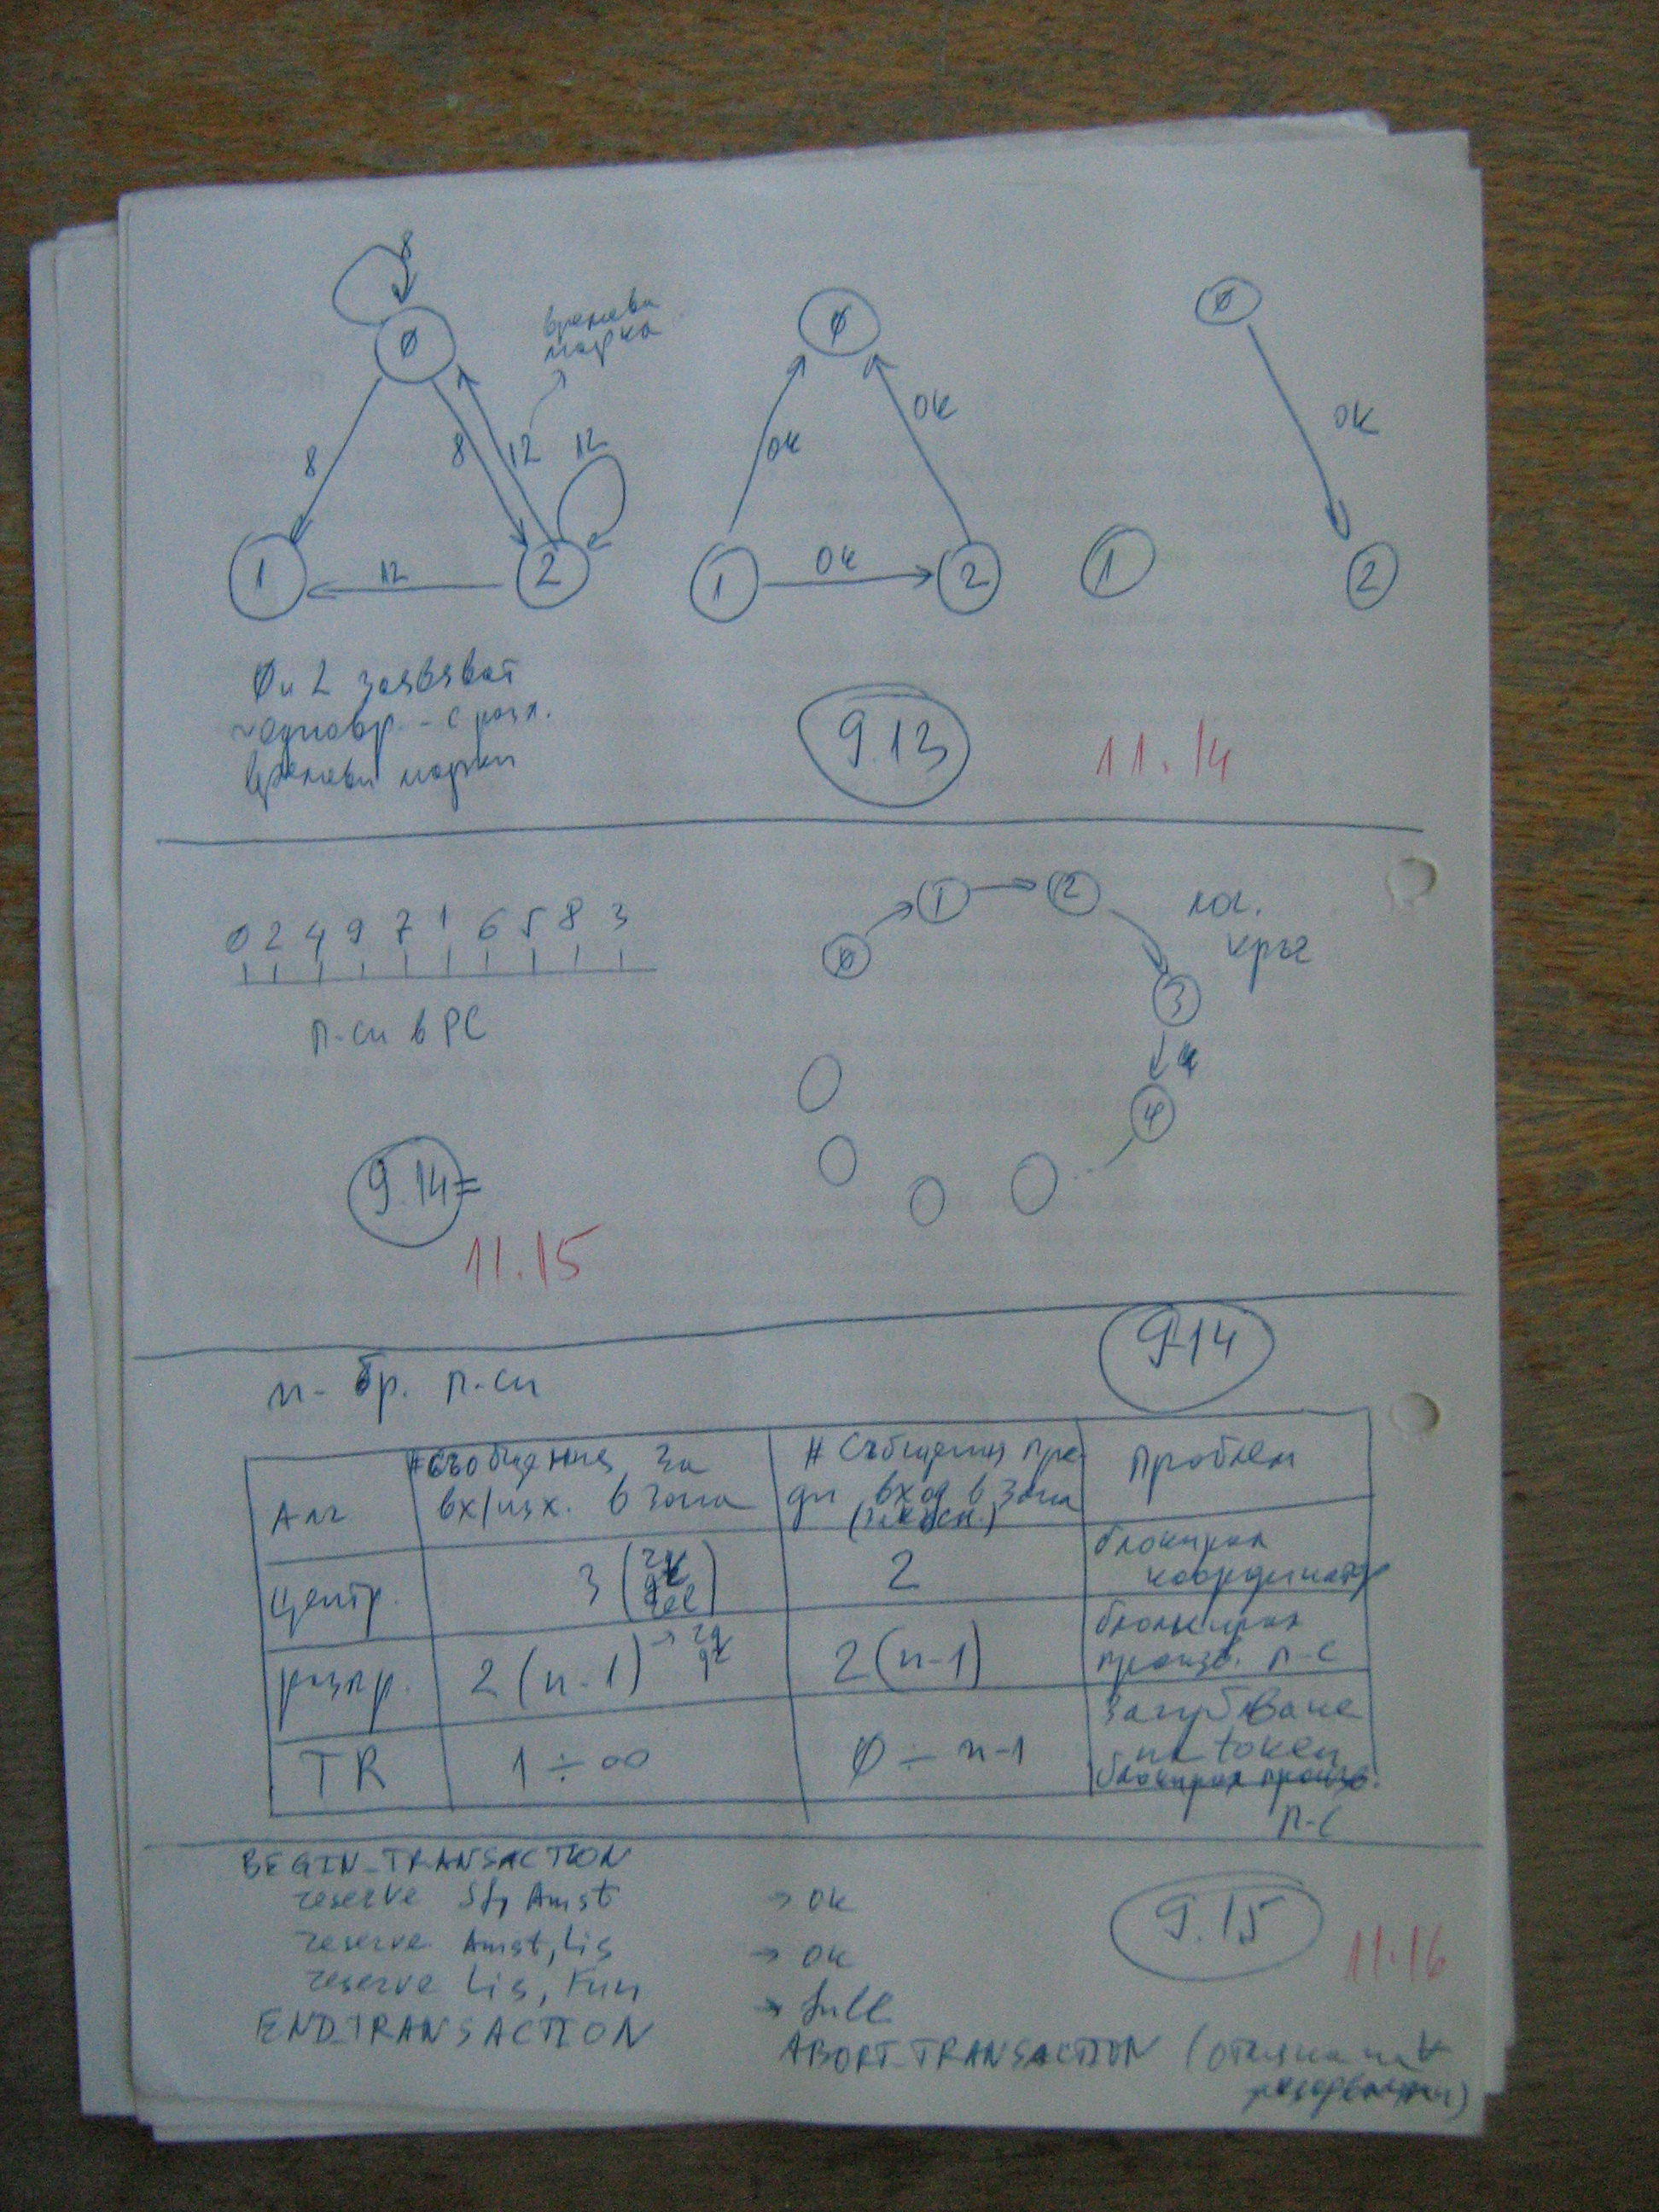 8
0
времеви
марка
8
8
12
12
1
12
2
0
ок
ок
1
ок
2
0
ок
1
2
0 и 2 заявяват
~едновр. - с разл.
времеви марки
9.13
11.14
0 2 4 9 7 1 6 5 8 3
п-си в РС
0
1
2
3
4
лог.
кръг
9.14=
11.15
9.14
n - бр. п-си
Алг
# съобщения за
вх/изх. в зона
# Съобщения пре
ди вход в зона
Проблем
Центр.
3
2
блокирал
координатор
разпр.
2(n-1)
2(n-1)
блокирал
произв. п-с
TR
1 ÷ ∞
0 ÷ n-1
Загубване
на token
блокирал произв.
п-с
BEGIN_TRANSACTION
reserve Sf, Amst → ok
reserve Amst, Lis → ok
reserve Lis, Fun → full
END_TRANSACTION
ABORT_TRANSACTION
9.15
11.16